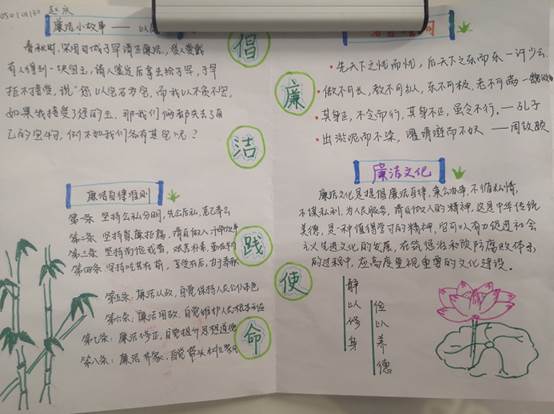 赵庆
廉洁小故事 —— 以
春秋时,宋国司城子罕清正廉洁,受人爱戴
有人得到一块宝玉,请人鉴定后拿去给子罕,子罕
拒不接受,说"您以宝石为宝,而我以不贪为宝,
如果我接受了您的玉,那我们俩都失去了自
己的宝物,倒不如我们各有其宝呢?
廉洁自律准则
第一条 坚持公私分明,先公后私,克己奉公
第二条 坚持崇廉拒腐,清白做人,干净做事
第三条 坚持尚俭戒奢,艰苦朴素,勤俭节约
第四条 坚持吃苦在前,享受在后,甘于奉献
第五条 廉洁从政,自觉保持人民公仆本色
第六条 廉洁用权,自觉维护人民根本利益
第七条 廉洁修身,自觉提升思想道德
第八条 廉洁齐家,自觉带头树立家风
倡
廉
洁
践
使
命
先天下之忧而忧,后天下之乐而乐
做不可长,欲不可纵,乐不可极,志不可满
其身正,不令而行,其身不正,虽令不行。——孔子
出淤泥而不染,濯清涟而不妖 ——周敦颐
廉洁文化
廉洁文化是提倡廉洁自律,秉公办事,不徇私情,
不谋私利,为人民服务,清白做人的精神,这是中华传统
美德,是一种值得学习的精神,它可以有力促进社会
主义先进文化的发展,在筑惩治和预防腐败体系
的过程中,应高度重视重要的文化建设。
静以修身
俭以养德